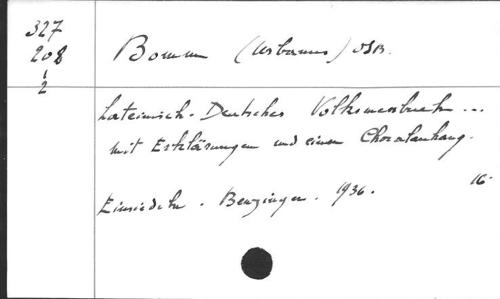 327
208
1
2
Bomm (Urbanus) OSB.
Lateinisch-Deutsches Volksmessbuch ...
mit Erklärungen und einem Choralanhang.
Einsiedeln. Benziger. 1936. 16-